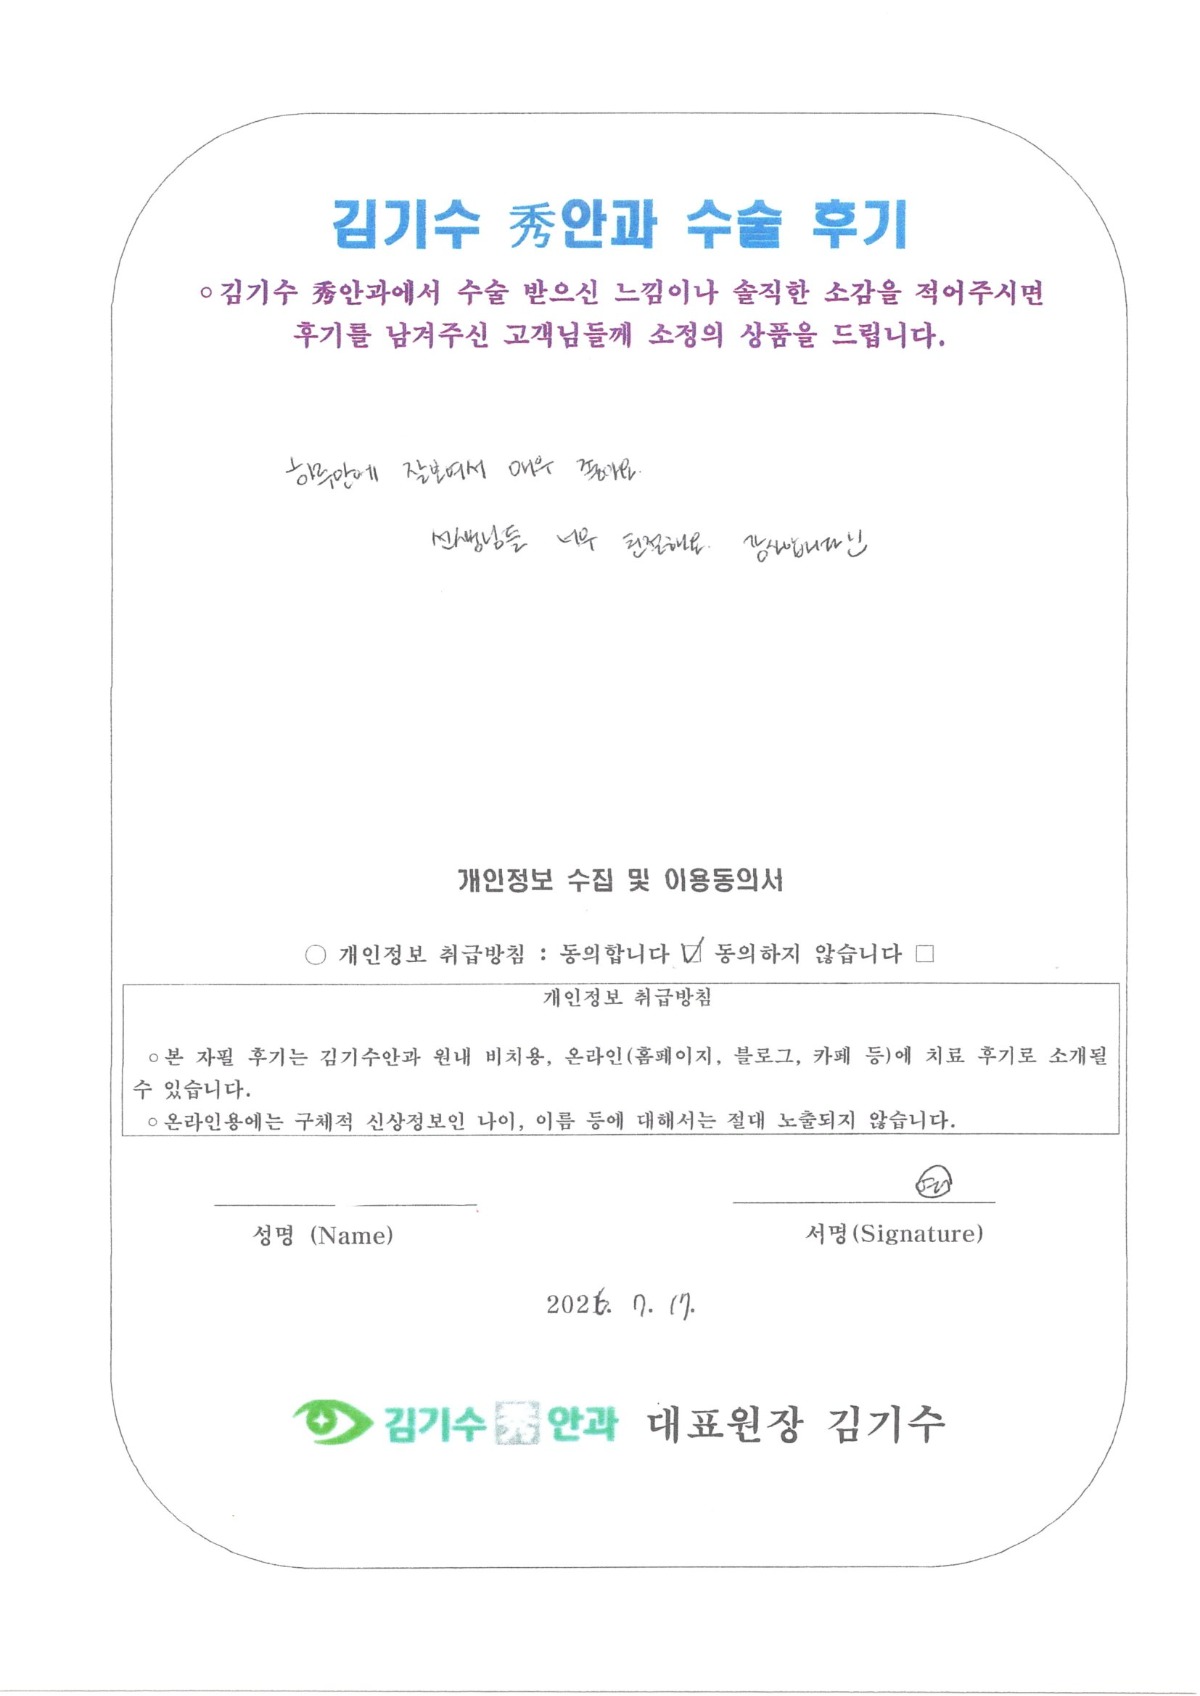 김기수 秀안과 수술 후기
○김기수 秀안과에서 수술 받으신 느낌이나 솔직한 소감을 적어주시면
후기를 남겨주신 고객님들께 소정의 상품을 드립니다.
하루만에 잘보여서 매우 좋아요.
선생님들 너무 친절해요. 감사합니다
개인정보 수집 및 이용동의서
○ 개인정보 취급방침 : 동의합니다 ☑ 동의하지 않습니다 □
개인정보 취급방침
○본 자필 후기는 김기수안과 원내 비치용, 온라인(홈페이지, 블로그, 카페 등)에 치료 후기로 소개될
수 있습니다.
○온라인용에는 구체적 신상정보인 나이, 이름 등에 대해서는 절대 노출되지 않습니다.
성명 (Name)
서명(Signature)
2026. 7. 17.
김기수 秀 안과 대표원장 김기수